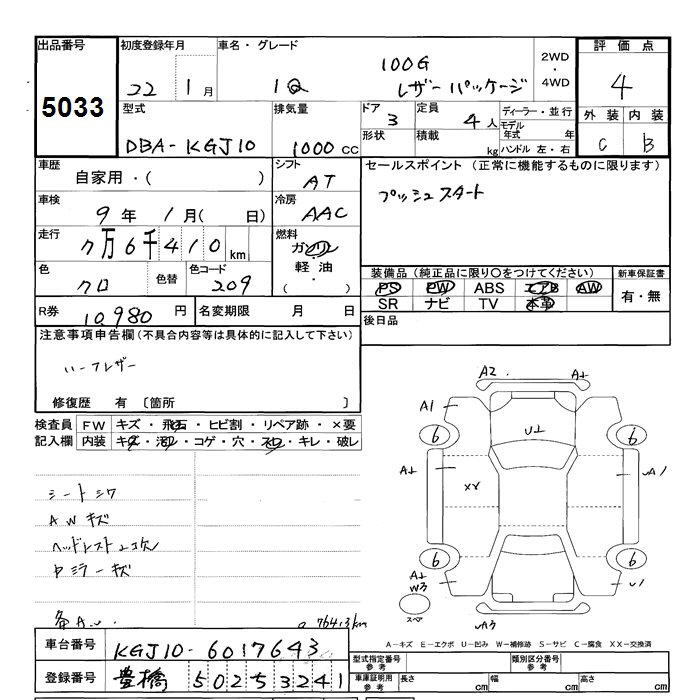 出品番号 初度登録年月 車名・グレード 評価点
5033 22 1月 1Q 100G レザーパッケージ 2WD・4WD 4
型式 排気量 ドア 3 定員 4人 ディーラー・並行 外装 内装
DBA-KGJ10 1000cc 形状 積載 kg モデル年式 年 C B
ハンドル 左・右
車歴 シフト セールスポイント (正常に機能するものに限ります)
自家用・( ) AT プッシュスタート
車検 冷房
9年 1月( 日) AAC
走行 燃料
7万6千410km ガソリン
軽油
( ・ )
色 色替 色コード
クロ 209
装備品(純正品に限り○をつけてください) 新車保証書
PS PW ABS エアB AW 有・無
SR ナビ TV 本革
R券 10,980円 名変期限 月 日 後日品
注意事項申告欄(不具合内容等は具体的に記入して下さい)
ハーフレザー
修復歴 有 〔箇所 〕
検査員 FW キズ・飛石・ヒビ割・リペア跡・×要
記入欄 内装 キズ・汚レ・コゲ・穴・スレ・キレ・破レ
シートシワ
AWキズ
ヘッドレスト2コ欠
ミラーキズ
A2
A1
U
6 6
XX
A1
6 6
W3
U1
スペア
A3
A-キズ E-エクボ U-凹み W-補修跡 S-サビ C-腐食 XX-交換済
車台番号 KGJ10-6017643
登録番号 豊橋 502 5 3241
型式指定番号 参考 類別区分番号 参考
車庫証明用 参考 長さ cm 幅 cm 高さ cm